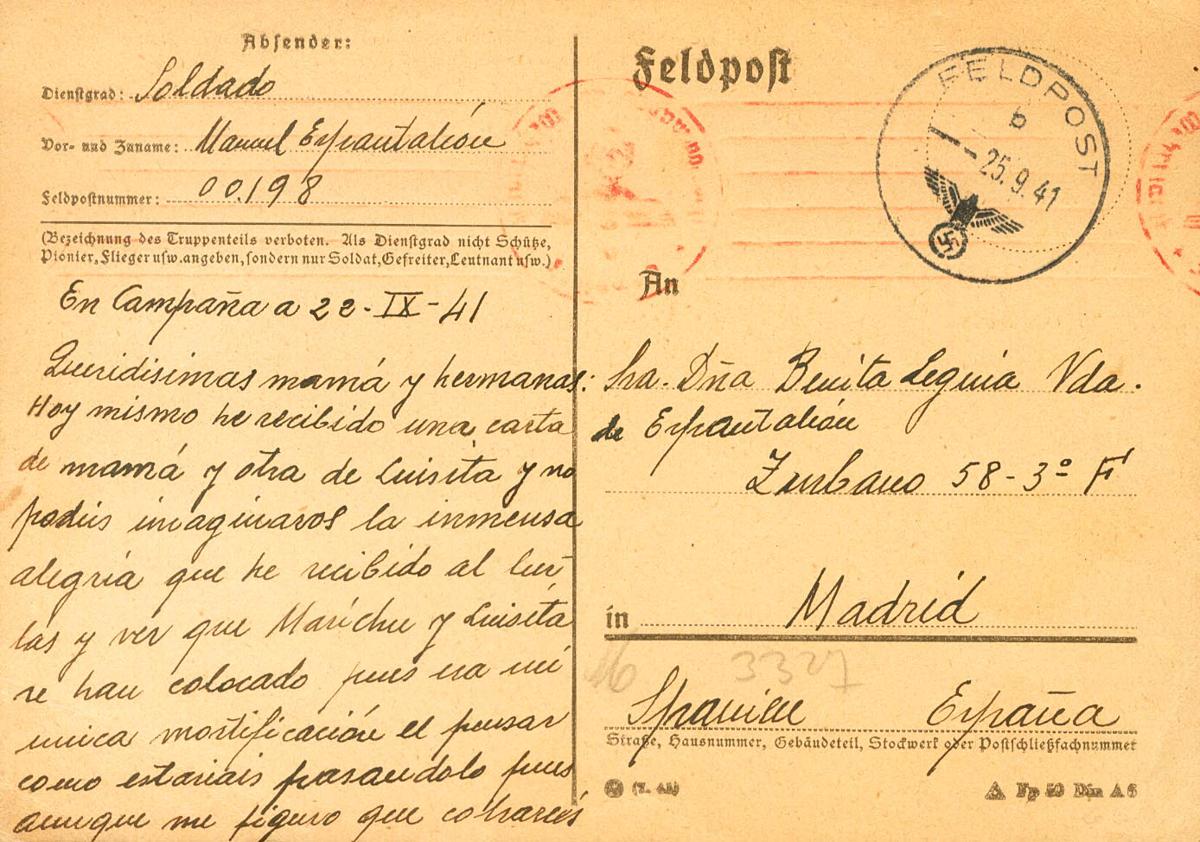 Absender:
Dienstgrad: Soldado
Vor- und Zuname: Manuel Espantaleón
Feldpostnummer: 00198
(Bezeichnung des Truppenteils verboten. Als Dienstgrad nicht Schütze,
Pionier, Flieger usw. angeben, sondern nur Soldat, Gefreiter, Leutnant usw.)
En Campaña a 22-IX-41
Queridisimas mamá y hermanas:
Hoy mismo he recibido una carta
de mamá y otra de Luisita y no
podeis imaginaros la inmensa
alegria que he recibido al leer
las y ver que Marichu y Luisita
se han colocado pues era mi
unica mortificación el pensar
como estariais pasandolo pues
aunque me figuro que cobrareis
Feldpost
FELDPOST
b
25.9.41
An
Sra. Dña Benita Leguia Vda.
de Espantaleón
Zurbano 58-3º F
in Madrid
3327
Spanien España
Straße, Hausnummer, Gebäudeteil, Stockwerk oder Postschließfachnummer
(7. 41)
Fp 50 Din A 6